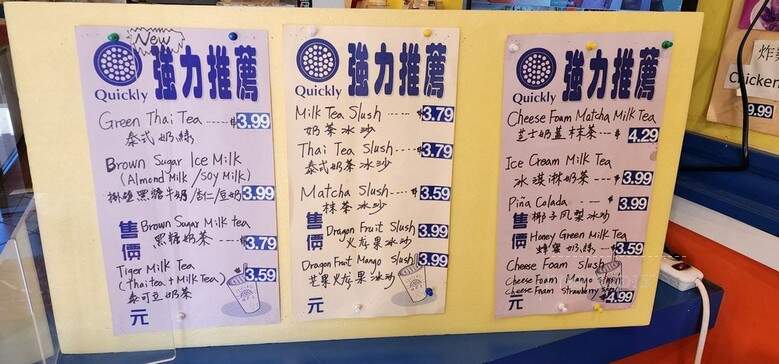 New
Quickly
強力推薦
Green Thai Tea ---- $3.99
泰式奶綠
Brown Sugar Ice Milk
(Almond Milk / Soy Milk)
黑糖牛奶/杏仁/豆奶 3.99
Brown Sugar Milk tea
黑糖奶茶 --- 3.79
Tiger Milk Tea
(thai tea + Milk Tea) $3.59
泰可豆奶茶
售價
元
Quickly
強力推薦
Milk Tea Slush ---- $3.79
奶茶冰沙
Thai Tea Slush ---- 3.79
泰式奶茶冰沙
Matcha Slush ---- $3.59
抹茶冰沙
Dragon Fruit Slush 3.99
火龙果冰沙
Dragon Fruit Mango Slush 3.99
芒果火龙果冰沙
售價
元
Quickly
強力推薦
Cheese Foam Matcha Milk Tea
芝士奶蓋抹茶 --- $4.29
Ice Cream Milk Tea
冰淇淋奶茶 --- $3.99
Piña Colada --- $3.99
椰子凤梨冰沙
Honey Green Milk Tea
蜂蜜奶綠 --- $3.59
Cheese Foam Slush
Cheese Foam Mango Slush
Cheese Foam Strawberry
4.99
售價
元
炸
Chicken